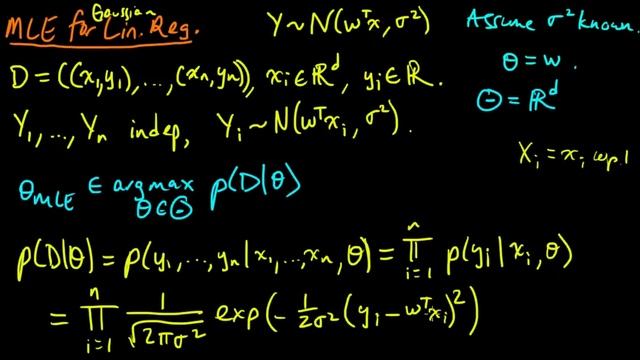 MLE for Gaussian Lin. Reg.
Y ~ N(wᵀx, σ²)
Assume σ² known.
θ = w.
Θ = ℝᵈ
D = ((x₁,y₁),...,(xₙ,yₙ)), xᵢ∈ℝᵈ, yᵢ∈ℝ.
Y₁,...,Yₙ indep, Yᵢ ~ N(wᵀxᵢ, σ²).
Xᵢ = xᵢ wp.1
θ_MLE ∈ argmax_{θ∈Θ} p(D|θ)
p(D|θ) = p(y₁,...,yₙ|x₁,...,xₙ,θ) = ∏_{i=1}^{n} p(yᵢ|xᵢ,θ)
= ∏_{i=1}^{n} 1/√(2πσ²) exp(-1/2σ² (yᵢ - wᵀxᵢ)²)